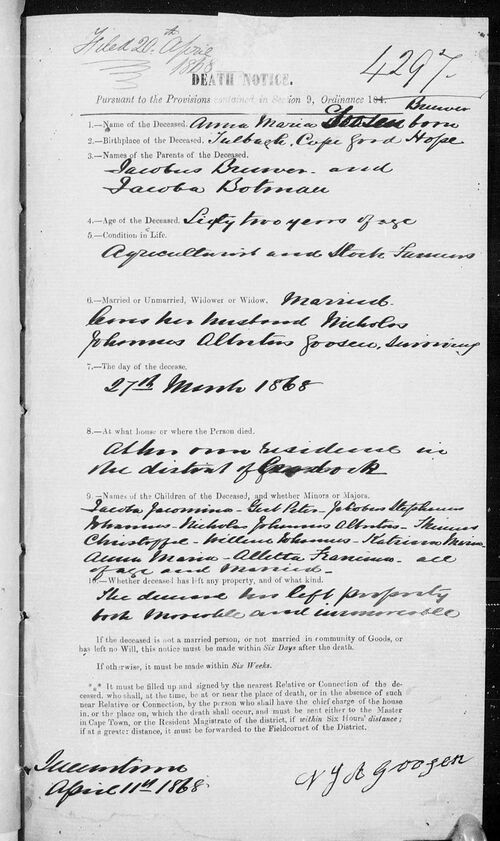 Filed 20th April
1868
4297.
DEATH NOTICE.
Pursuant to the Provisions contained in Section 9, Ordinance 104.
Breuwer
1.—Name of the Deceased. Anna Maria Goosen born
2.—Birthplace of the Deceased. Tulbagh, Cape Good Hope
3.—Names of the Parents of the Deceased.
Jacobus Breuwer and
Jacoba Botman
4.—Age of the Deceased. Sixty two years of age
5.—Condition in Life.
Agriculturist and Stock Farmers
6.—Married or Unmarried, Widower or Widow. Married
leaves her husband Nicholas
Johannes Albertus Goosen, surviving
7.—The day of the decease.
27th March 1868
8.—At what house or where the Person died.
At her own residence in
the district of Cradock
9.—Names of the Children of the Deceased, and whether Minors or Majors.
Jacoba Jacomina - Gert Peter - Jacobus Stephanus
Johannes - Nicholas Johannes Albertus -
Christoffel - Willem Johannes - Katrina Maria
Anna Maria - Alletta Francina - all
of age and Married -
10.—Whether deceased has left any property, and of what kind.
The deceased has left property
both moveable and immoveable
If the deceased is not a married person, or not married in community of Goods, or
has left no Will, this notice must be made within Six Days after the death.
If otherwise, it must be made within Six Weeks.
*** It must be filled up and signed by the nearest Relative or Connection of the de-
ceased, who shall, at the time, be at or near the place of death, or in the absence of such
near Relative or Connection, by the person who shall have the chief charge of the house
in, or the place on, which the death shall occur, and must be sent either to the Master
in Cape Town, or the Resident Magistrate of the district, if within Six Hours' distance;
if at a greater distance, it must be forwarded to the Fieldcornet of the District.
Queenstown
April 11th 1868
N J A Goosen